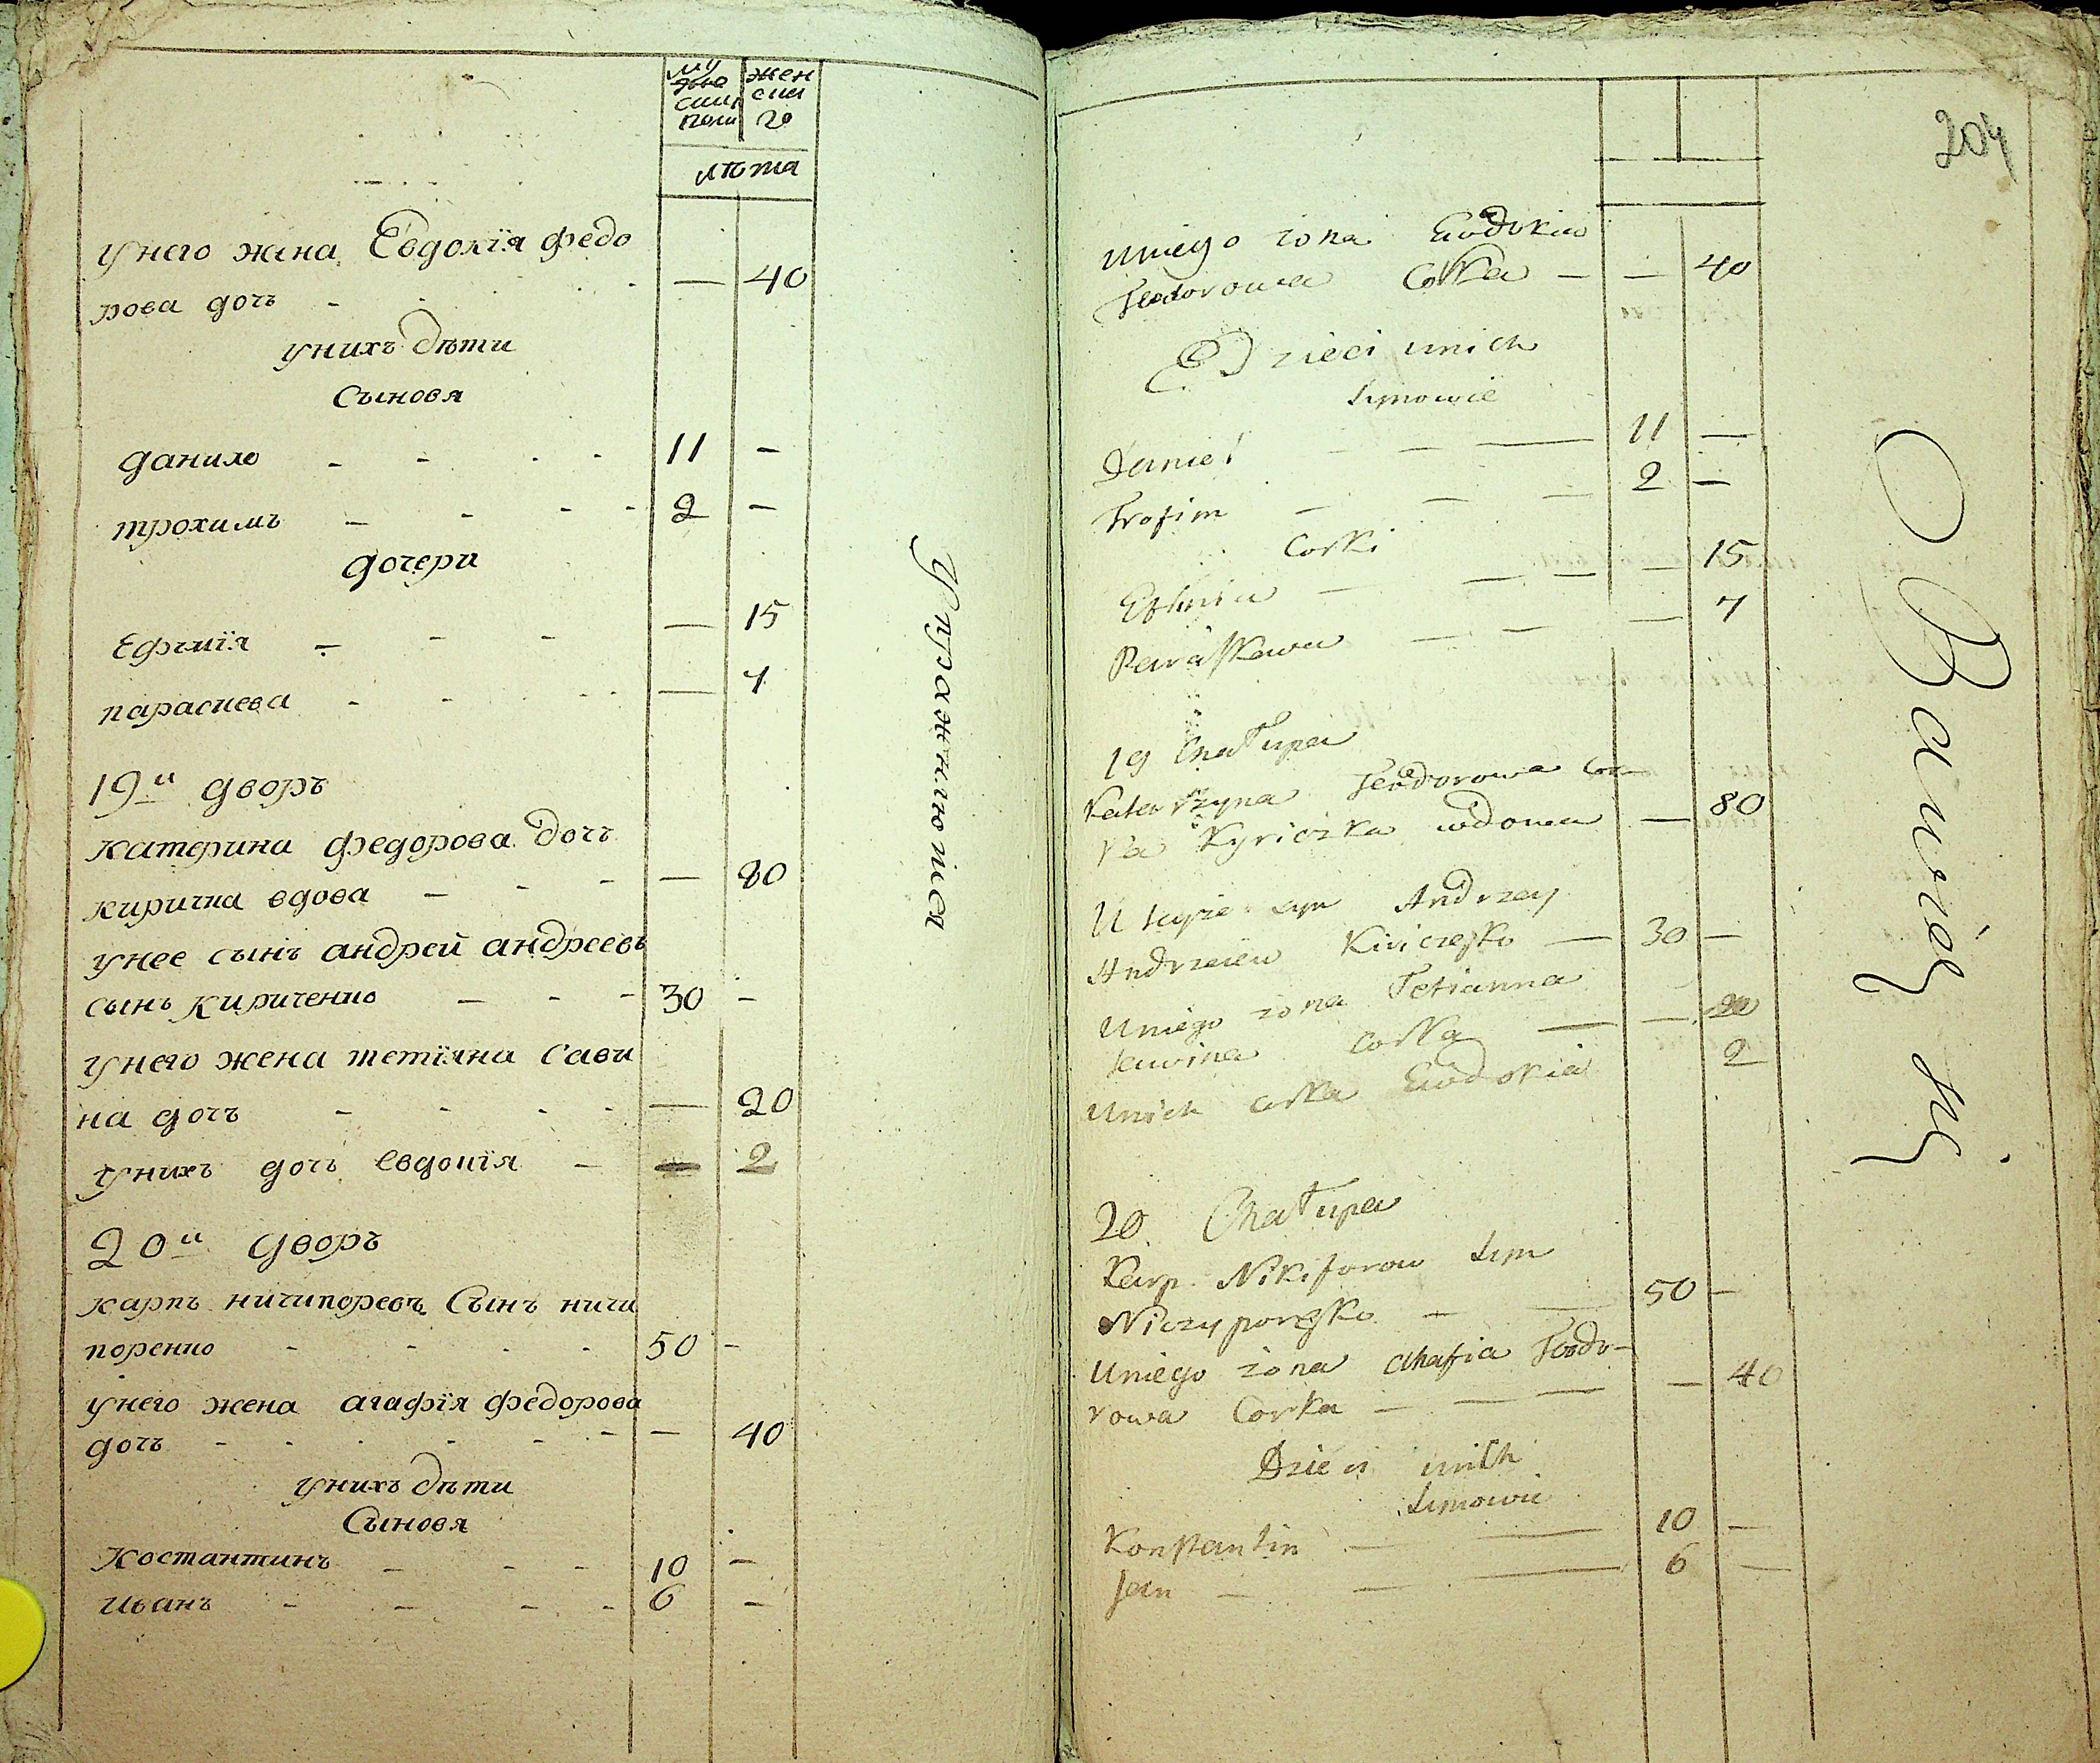 мужескаго полу
женскаго
лѣта
унего жена Евдокїя федо
рова дочъ - - - - — 40
унихъ дѣти
Сыновя
данило - - - - 11 -
трохимъ - - - - 2 -
дочери
Ефимїя - - - — 15
параскева - - - - — 7
19й дворъ
катерина федорова дочъ
киричка вдова - - - — 80
унее сынъ андрей андреевъ
сынъ кириченко - - - 30 -
унего жена тетїяна сави
на дочъ - - - - — 20
унихъ дочъ евдокїя - — 2
20й дворъ
карпъ ничипоревъ Сынъ ничи
поренко - - - - 50 -
унего жена агафїя федорова
дочъ - - - - - - — 40
унихъ дѣти
Сыновя
Костантинъ - - - 10 -
иванъ - - - - 6 -
Упражняются
204
uniego żona Ewdokia
Teodorowa Corka — — 40
Dzieci unich
Synowie
Daniel — — — 11 —
Trofim — — — 2 —
Corki
Efimia — — — — 15
Paraskewa — — — 7
19 Chałupa
Katarzyna Teodorowa Cor
ka Kyriczka wdowa — 80
U teyże syn Andrzey
Andrzeiew Kiriczeńko — 30 —
Uniego żona Tetianna
Sawina corka — — 20
Unich corka Ewdokia 2
20 Chałupa
Karp Nikiforow Syn
Niczyporeńko — — 50 —
Uniego żona Ahafia Teodo-
rowa Corka — — — 40
Dzieci unich
Synowie
Konstantin — — 10 —
Jan — — — 6 —
Bawią się